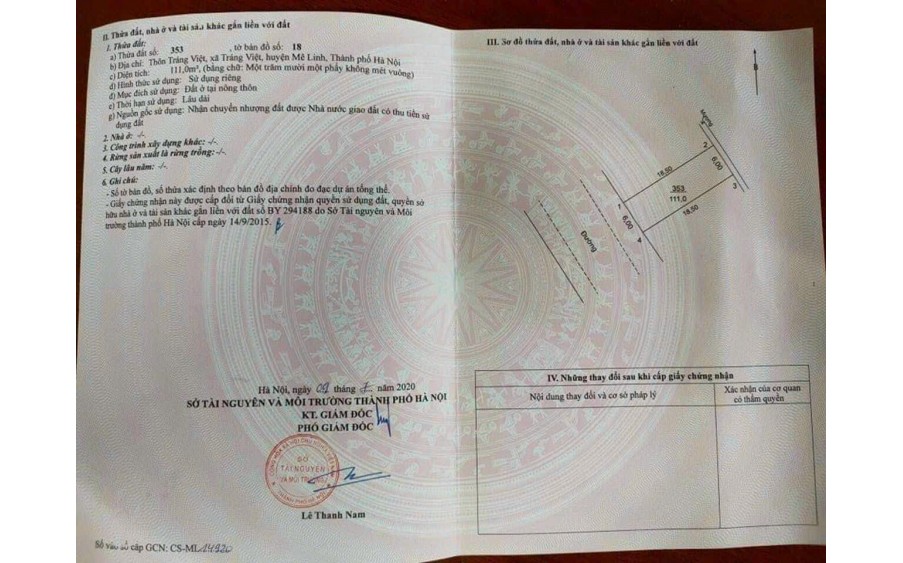 II. Thửa đất, nhà ở và tài sản khác gắn liền với đất
1. Thửa đất:
a) Thửa đất số: 353 , tờ bản đồ số: 18
b) Địa chỉ: Thôn Tráng Việt, xã Tráng Việt, huyện Mê Linh, Thành phố Hà Nội
c) Diện tích: 111,0m², (bằng chữ: Một trăm mười một phẩy không mét vuông)
d) Hình thức sử dụng: Sử dụng riêng
đ) Mục đích sử dụng: Đất ở tại nông thôn
e) Thời hạn sử dụng: Lâu dài
g) Nguồn gốc sử dụng: Nhận chuyển nhượng đất được Nhà nước giao đất có thu tiền sử
dụng đất
2. Nhà ở: -/-
3. Công trình xây dựng khác: -/-
4. Rừng sản xuất là rừng trồng: -/-
5. Cây lâu năm: -/-
6. Ghi chú:
- Số tờ bản đồ, số thửa xác định theo bản đồ địa chính đo đạc dự án tổng thể.
- Giấy chứng nhận này được cấp đổi từ Giấy chứng nhận quyền sử dụng đất, quyền sở
hữu nhà ở và tài sản khác gắn liền với đất số BY 294188 do Sở Tài nguyên và Môi
trường thành phố Hà Nội cấp ngày 14/9/2015.
Hà Nội, ngày 09 tháng 7 năm 2020
SỞ TÀI NGUYÊN VÀ MÔI TRƯỜNG THÀNH PHỐ HÀ NỘI
KT. GIÁM ĐỐC
PHÓ GIÁM ĐỐC
SỞ
TÀI NGUYÊN
VÀ MÔI TRƯỜNG
THÀNH PHỐ HÀ NỘI
Lê Thanh Nam
Số vào sổ cấp GCN: CS-ML
III. Sơ đồ thửa đất, nhà ở và tài sản khác gắn liền với đất
B
Mương
2
18,50
6,00
353
111,0
3
1
6,00
18,50
4
Đường
IV. Những thay đổi sau khi cấp giấy chứng nhận
Nội dung thay đổi và cơ sở pháp lý
Xác nhận của cơ quan
có thẩm quyền